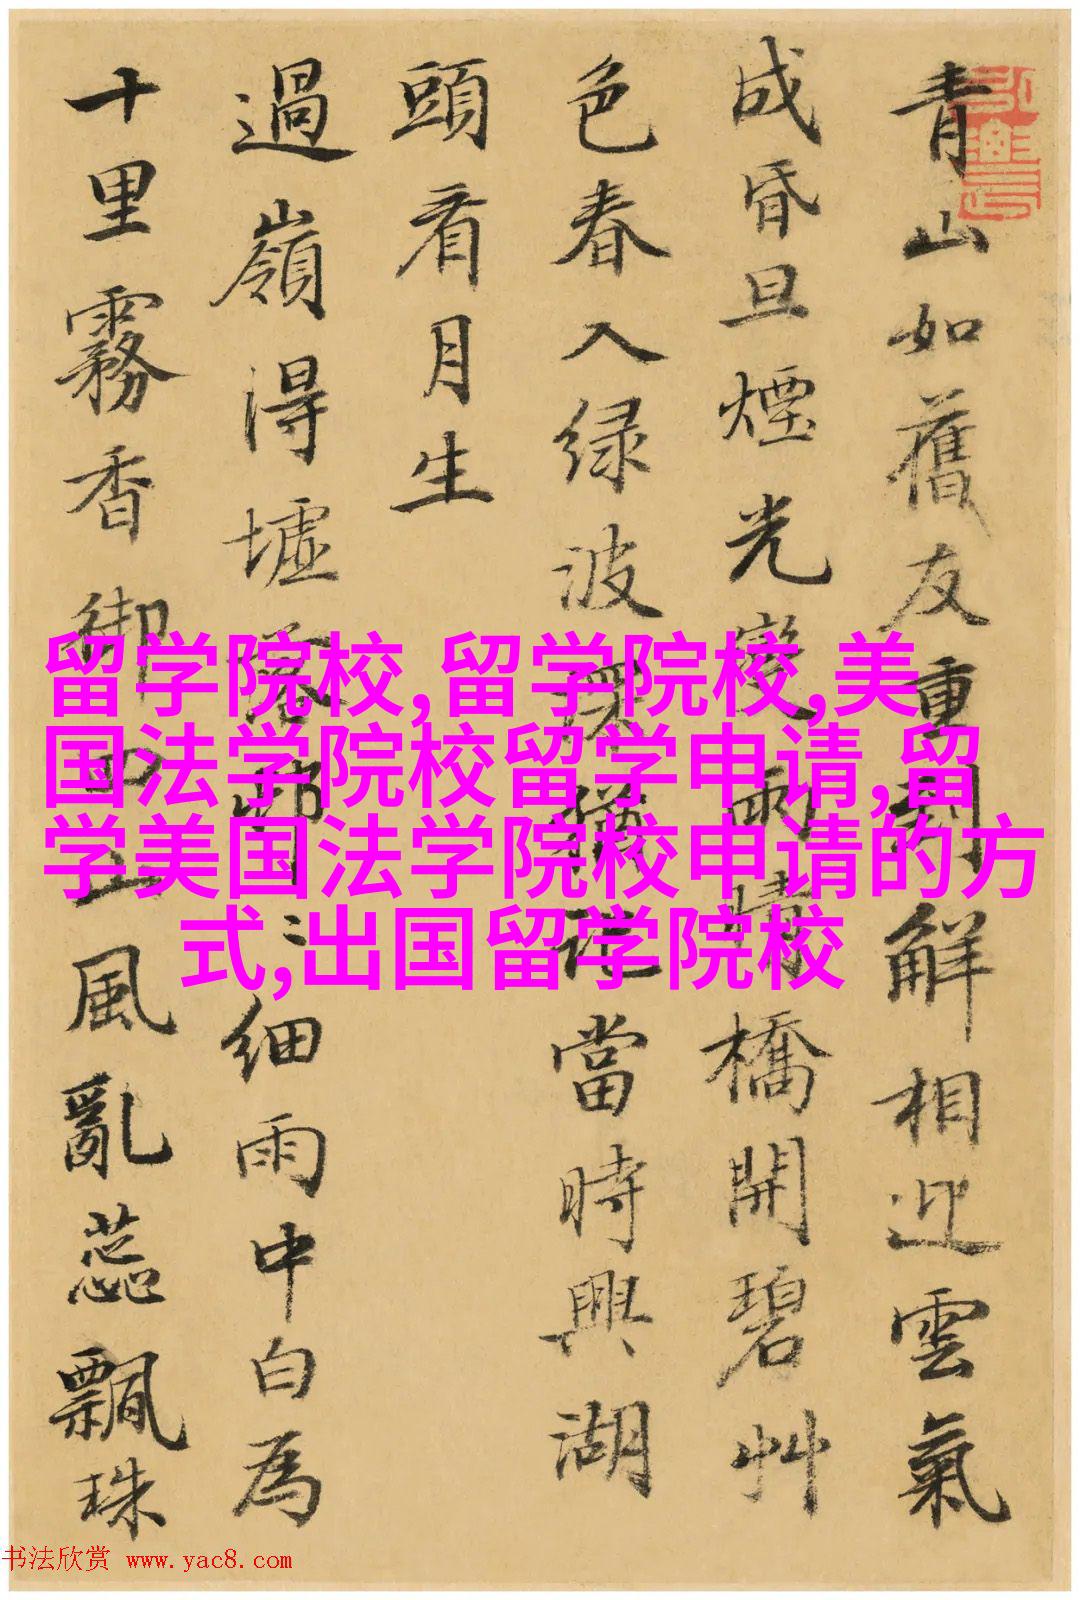 青山如舊友重到解相迎雲氣
成昏旦煙光變雨晴橋開碧艸
色春入绿波猶當時興湖
頭看月生
過嶺得墟邨細雨中白為
十里霧香御四山風亂蕊飄珠
留学院校,留学院校,美
国法学院校留学申请,留
学美国法学院校申请的方
式,出国留学院校
书法欣赏 www.yac8.com